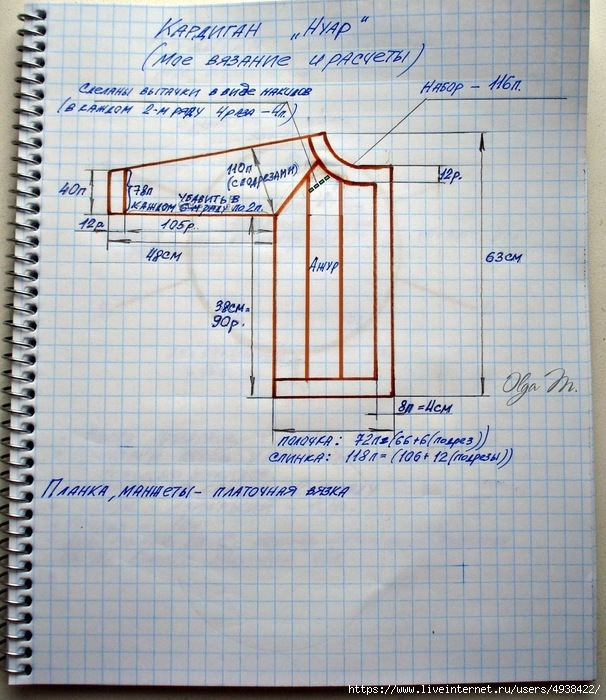 Кардиган „Нуар"
(Мое вязание и расчеты)
Сделаны вытачки в виде накидов
(в каждом 2-м ряду 4 раза - 4п.)
Набор - 116п.
110п
(с подрезами)
12р.
40п
78п
Убавить в
каждом 6-м ряду по 2п.
12р.
105р.
48см
Ажур
63см
38см=
90р.
Olga M.
8п=4см
Полочка: 72п=(66+6(подрез))
Спинка: 118п=(106+12(подрезы))
Планка, манжеты - платочная вязка
https://www.liveinternet.ru/users/4938422/